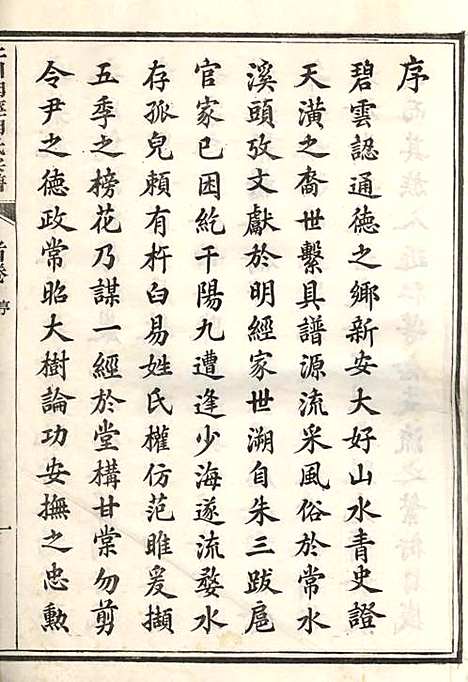 序
碧雲認通德之鄉新安大好山水青史證
天潢之裔世繫具譜源流采風俗於常水
溪頭攷文獻於明經家世溯自朱三跋扈
官家已困紇干陽九遭逢少海遂流婺水
存孤兒賴有杵臼易姓氏權仿范雎爰擷
五季之榜花乃謀一經於堂構甘棠勿剪
令尹之德政常昭大樹論功安撫之忠勳
首卷 序
一